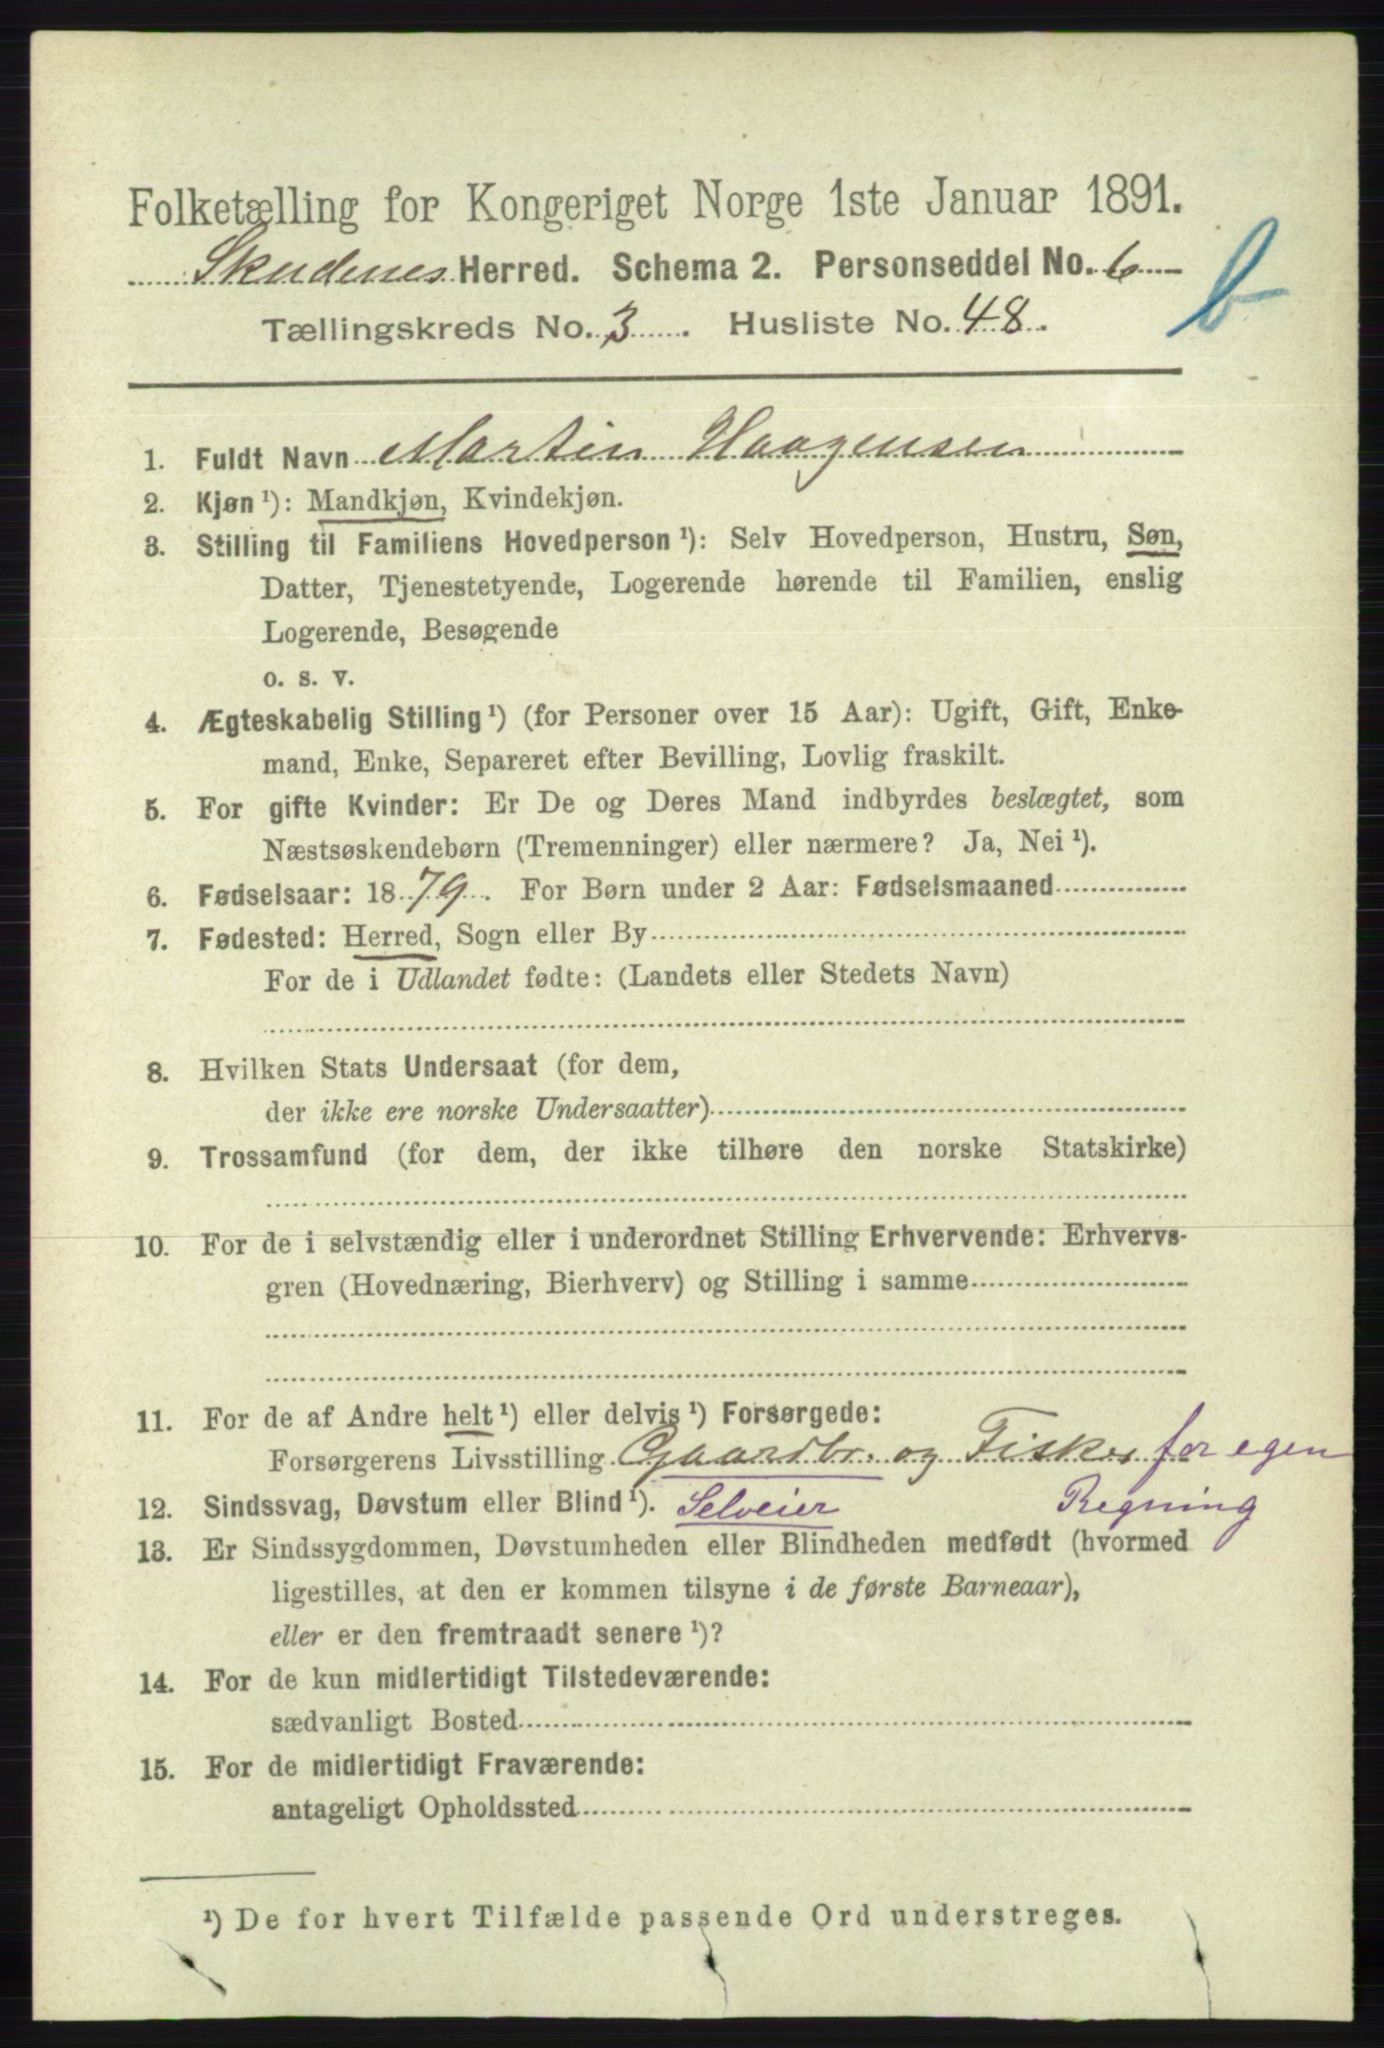 Folketælling for Kongeriget Norge 1ste Januar 1891.
Skudenes Herred. Schema 2. Personseddel No. 6
b
Tællingskreds No. 3. Husliste No. 48.
1. Fuldt Navn Martin Haagensen
2. Kjøn ¹): Mandkjøn, Kvindekjøn.
3. Stilling til Familiens Hovedperson ¹): Selv Hovedperson, Hustru, Søn,
Datter, Tjenestetyende, Logerende hørende til Familien, enslig
Logerende, Besøgende
o. s. v.
4. Ægteskabelig Stilling ¹) (for Personer over 15 Aar): Ugift, Gift, Enke-
mand, Enke, Separeret efter Bevilling, Lovlig fraskilt.
5. For gifte Kvinder: Er De og Deres Mand indbyrdes beslægtet, som
Næstsøskendebørn (Tremenninger) eller nærmere? Ja, Nei ¹).
6. Fødselsaar: 1879. For Børn under 2 Aar: Fødselsmaaned
7. Fødested: Herred, Sogn eller By
For de i Udlandet fødte: (Landets eller Stedets Navn)
8. Hvilken Stats Undersaat (for dem,
der ikke ere norske Undersaatter)
9. Trossamfund (for dem, der ikke tilhøre den norske Statskirke)
10. For de i selvstændig eller i underordnet Stilling Erhvervende: Erhvervs-
gren (Hovednæring, Bierhverv) og Stilling i samme
11. For de af Andre helt ¹) eller delvis ¹) Forsørgede:
Forsørgerens Livsstilling Gaardbr. og Fisker for egen
12. Sindssvag, Døvstum eller Blind ¹). Selveier Regning
13. Er Sindssygdommen, Døvstumheden eller Blindheden medfødt (hvormed
ligestilles, at den er kommen tilsyne i de første Barneaar),
eller er den fremtraadt senere ¹)?
14. For de kun midlertidigt Tilstedeværende:
sædvanligt Bosted
15. For de midlertidigt Fraværende:
antageligt Opholdssted
¹) De for hvert Tilfælde passende Ord understreges.